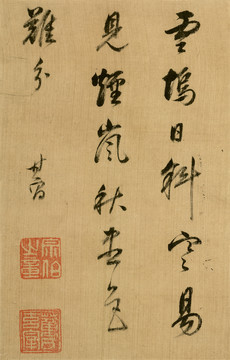 雲塢日斜容易
見煙嵐秋色
難分
其昌